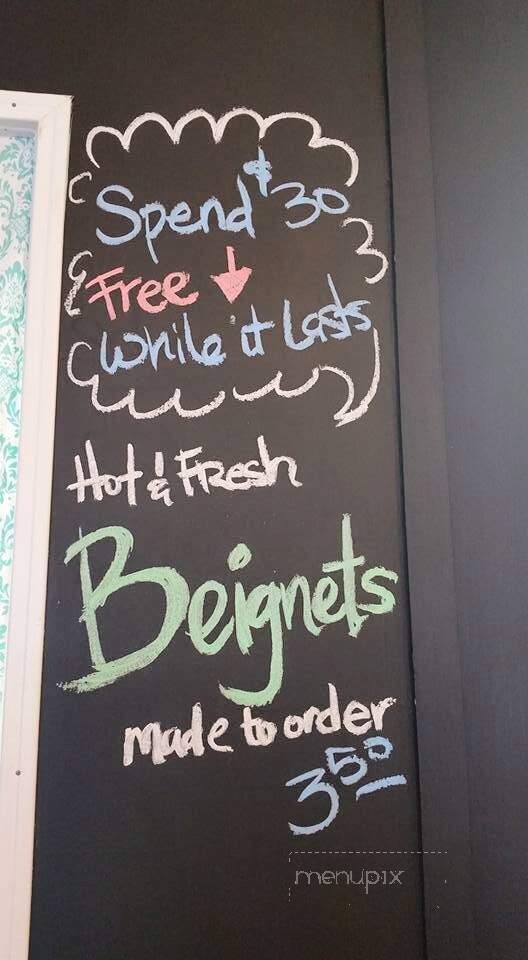 Spend $30
Free ↓
While it Lasts
Hot & Fresh
Beignets
made to order
3.50
menupix